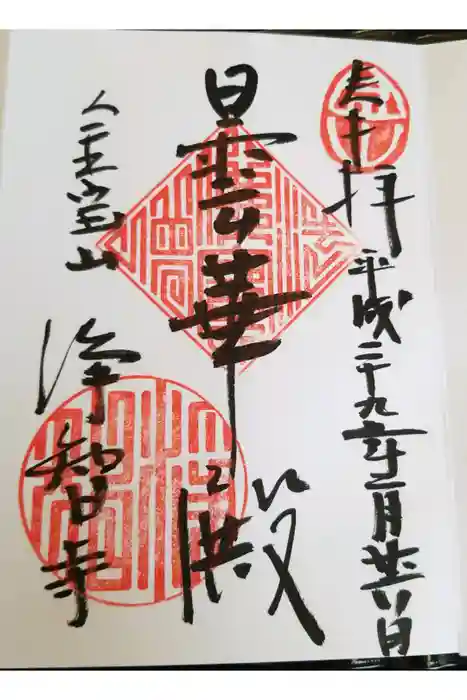 奉拝
平成二十九年一月廿六日
曇華殿
金宝山
浄智寺